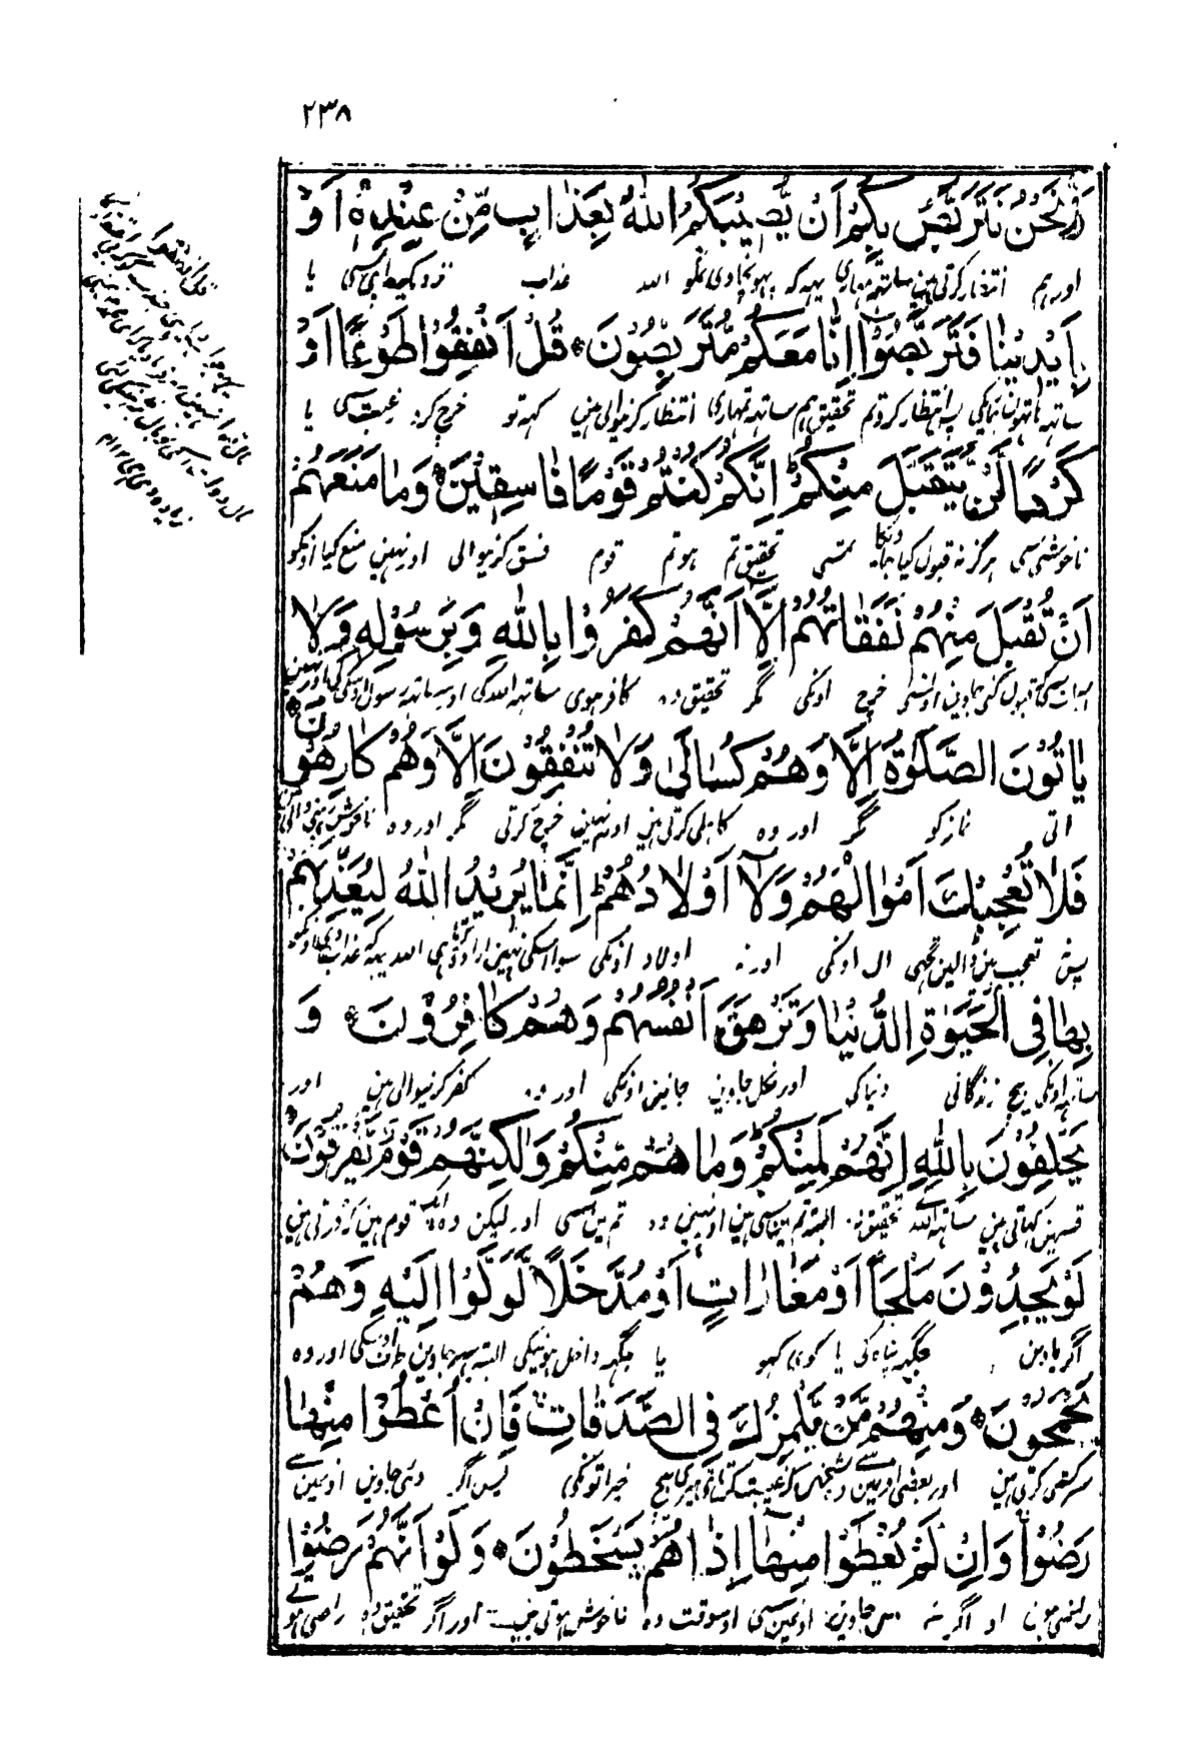 ٢٣٨
وَنَحْنُ نَتَرَبَّصُ بِكُمْ اَنْ يُّصِيْبَكُمُ اللّٰهُ بِعَذَابٍ مِّنْ عِنْدِهٖ اَوْ
اور هم انتظار کرتی هین ساتهه تمهاری یهه که پهونچاوی تمکو الله عذاب نزدیک اپنی سی یا
بِاَيْدِيْنَا فَتَرَبَّصُوْٓا اِنَّا مَعَكُمْ مُّتَرَبِّصُوْنَ قُلْ اَنْفِقُوْا طَوْعًا اَوْ
ساتهه هاتهون پس انتظار کرو تم تحقیق هم ساتهه تمهاری انتظار کرنیوالی هین کهه تو خرچ کرو رغبت سی یا
كَرْهًا لَّنْ يُّتَقَبَّلَ مِنْكُمْ اِنَّكُمْ كُنْتُمْ قَوْمًا فَاسِقِيْنَ وَمَا مَنَعَهُمْ
ناخوشی سی هرگز نه قبول کیا جاویگا تمسی تحقیق تم هو تم قوم فسق کرنیوالی اور نهین منع کیا اونکو
اَنْ تُقْبَلَ مِنْهُمْ نَفَقَاتُهُمْ اِلَّآ اَنَّهُمْ كَفَرُوْا بِاللّٰهِ وَبِرَسُوْلِهٖ وَلَا
قبول کئی جاوین اونسی خرچ اونکی مگر تحقیق وه کافر هوی ساتهه الله کی اور ساتهه رسول اوسکی کی اور نهین
يَاْتُوْنَ الصَّلٰوةَ اِلَّا وَهُمْ كُسَالٰى وَلَا يُنْفِقُوْنَ اِلَّا وَهُمْ كَارِهُوْنَ
اتی نماز کو مگر اور وه کاهلی کرتی هین اور نهین خرچ کرتی مگر اور وه ناخوش هین
فَلَا تُعْجِبْكَ اَمْوَالُهُمْ وَلَآ اَوْلَادُهُمْ اِنَّمَا يُرِيْدُ اللّٰهُ لِيُعَذِّبَهُمْ
پس تعجب مین ڈالین تجهی مال اونکی اور نه اولاد اونکی سوا اسکی نهین اراده کرتا هی الله یهه که عذاب کری اونکو
بِهَا فِي الْحَيٰوةِ الدُّنْيَا وَتَزْهَقَ اَنْفُسُهُمْ وَهُمْ كَافِرُوْنَ وَ
ساتهه اونکی بیچ زندگانی دنیا کی اور نکل جاوین جانین اونکی اور وه کفر کرنیوالی هین اور
يَحْلِفُوْنَ بِاللّٰهِ اِنَّهُمْ لَمِنْكُمْ وَمَا هُمْ مِّنْكُمْ وَلٰكِنَّهُمْ قَوْمٌ يَّفْرَقُوْنَ
قسمین کهاتی هین ساتهه الله کے تحقیق وه البته تم مین سی هین اور نهین وه تم مین سی اور لیکن وه ایک قوم هین که ڈرتی هین
لَوْ يَجِدُوْنَ مَلْجَاً اَوْ مَغَارَاتٍ اَوْ مُدَّخَلًا لَّوَلَّوْا اِلَيْهِ وَهُمْ
اگر پاوین جگهه پناه کی یا کوی کهو یا جگهه داخل هونیکی البته پهر جاوین طرف اوسکی اور وه
يَجْمَحُوْنَ وَمِنْهُمْ مَّنْ يَّلْمِزُكَ فِي الصَّدَقَاتِ فَاِنْ اُعْطُوْا مِنْهَا
سرکشی کرتی هین اور بعضی اونمین سے وه شخص هی که عیب کرتا هی بیچ خیراتونکی پس اگر دئی جاوین اوسمین سے
رَضُوْا وَاِنْ لَّمْ يُعْطَوْا مِنْهَآ اِذَا هُمْ يَسْخَطُوْنَ وَلَوْ اَنَّهُمْ رَضُوْا
راضی هون اور اگر نه دی جاوین اونمین سی اوسوقت وه ناخوش هوتی هین اور اگر تحقیق وه راضی هوتے